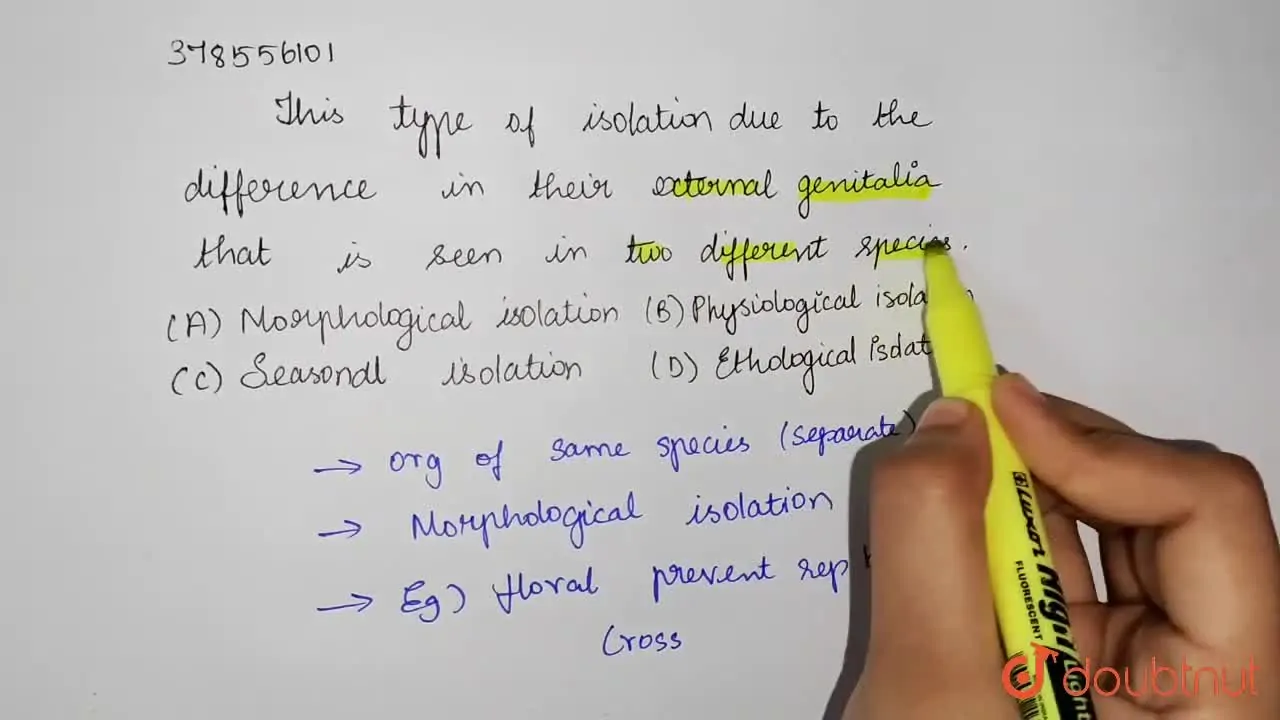 378556101
This type of isolation due to the
difference in their external genitalia
that is seen in two different species.
(A) Morphological isolation (B) Physiological
(C) Seasonal isolation (D) Ethological
→ org of same species (separate)
→ Morphological isolation
→ Eg) floral prevent rep
Cross
LUXOR
FLUORESCENT
doubtnut